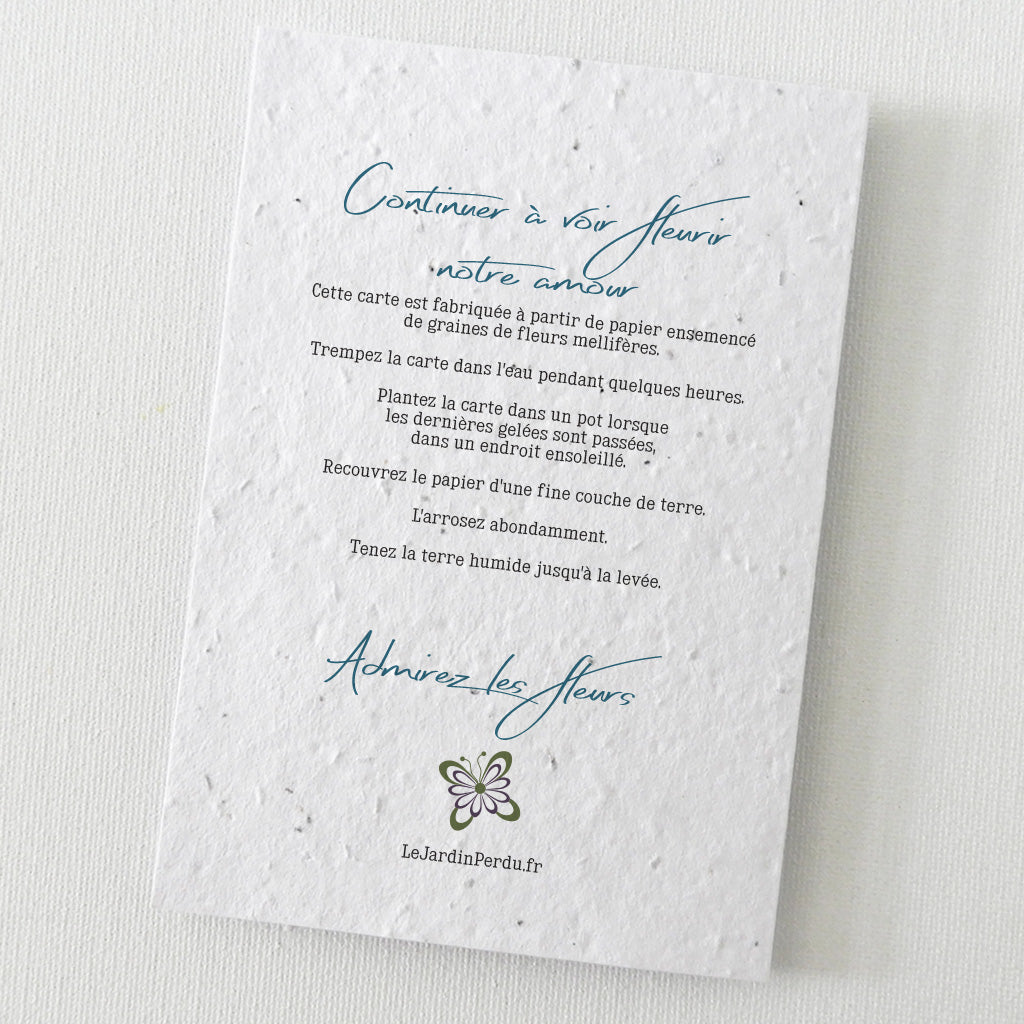 Continuer à voir fleurir
notre amour
Cette carte est fabriquée à partir de papier ensemencé
de graines de fleurs mellifères.
Trempez la carte dans l'eau pendant quelques heures.
Plantez la carte dans un pot lorsque
les dernières gelées sont passées,
dans un endroit ensoleillé.
Recouvrez le papier d'une fine couche de terre.
L'arrosez abondamment.
Tenez la terre humide jusqu'à la levée.
Admirez les fleurs
LeJardinPerdu.fr